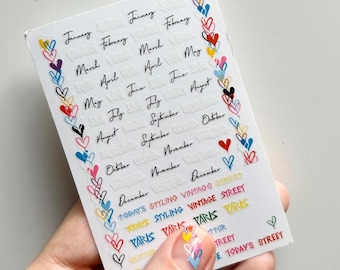 January January
February February
March March
April April
May June June
July May
July
August September August
September
October October
November
November
December December
TODAY'S STYLING VINTAGE STREET
YOURS STYLING VINTAGE STREET
PARIS PARIS PARIS
STREET
TODAY'S STREET